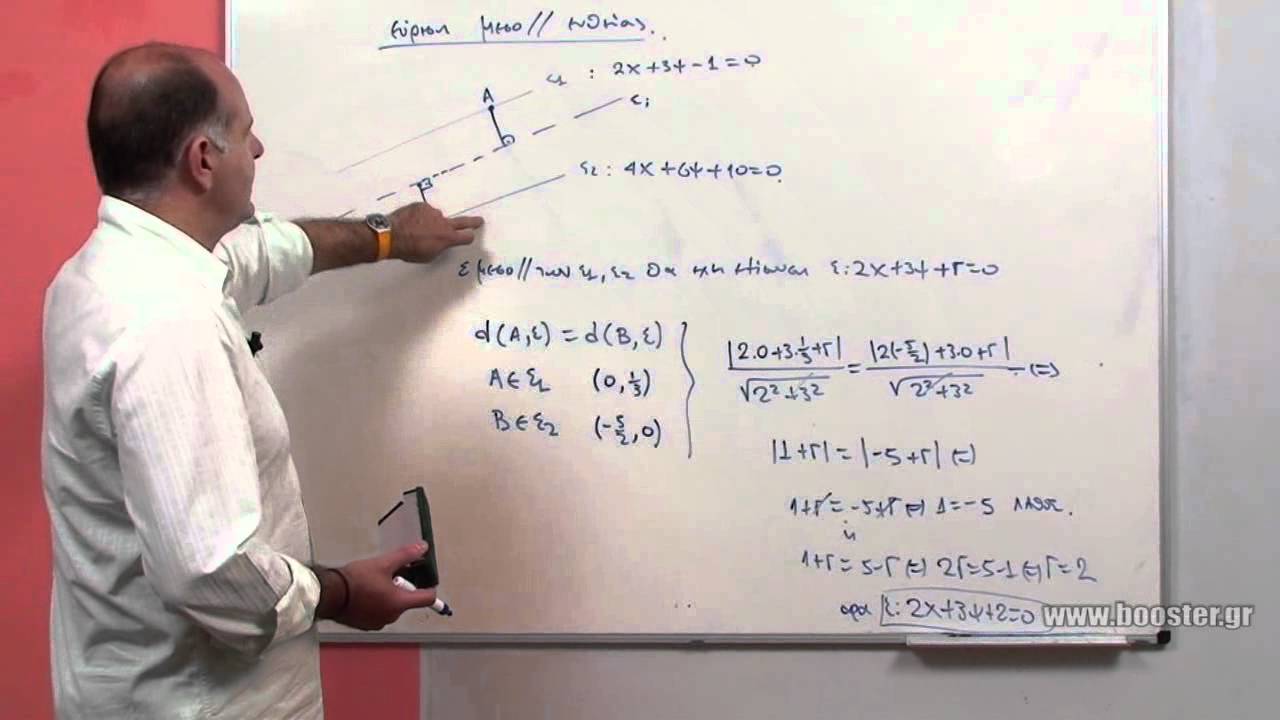 εύρεση μεσο// ευθείας.
ε1 : 2x+3ψ-1=0
A
ε
ε2 : 4x+6ψ+10=0.
B
ε μεσο// των ε1, ε2 θα έχει εξίσωση ε: 2x+3ψ+Γ=0
d(A,ε) = d(B,ε)
A∈ε1 (0, 1/3)
B∈ε2 (-5/2, 0)
|2·0+3·1/3+Γ| / √2²+3² = |2(-5/2)+3·0+Γ| / √2²+3² (=)
|1+Γ| = |-5+Γ| (=)
1+Γ = -5+Γ (=) 1=-5 λάθος.
ή
1+Γ = 5-Γ (=) 2Γ=5-1 (=) Γ=2
άρα ε: 2x+3ψ+2=0
www.booster.gr